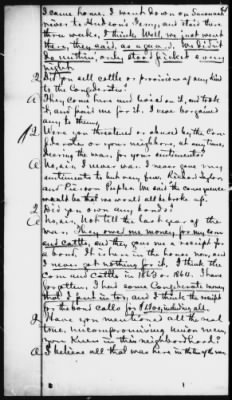 I came home, I went down on Savannah
river to Hudson's Ferry, and staid there
three weeks, I think. Well, we just went
there, they said, as a guard. We didn't
do nothin', only stood picket every
night.
Q Did you sell cattle or provisions of any kind
to the Confederates?
A They come here and it, and took
it, and paid me for it. I never bargained
any to them.
Q Were you threatened or abused by the Con-
feds or your neighbors, at any time,
during the war, for your sentiments?
A No, sir, I never was. I never gave my
sentiments to but very few. Richard Taylor
and Pierson Peeples. We said the consequence
would be that we would all be broke up.
Q Did you own any bonds?
A No, sir, not till the last year of the
war. They owed me money for my corn
and cattle, and they gave me a receipt for
a bond. It is here in the house now, and
I never got nothing for it. I think the
corn and cattle in 1863 or 1864. I have
forgotten. I had some Confederate money
that I put in too, and I think the receipt
for the bond calls for $1600, including all.
Q Have you mentioned all the real
true, uncompromising Union men
you knew in this neighborhood?
A I believe all that was here in the time of the war.